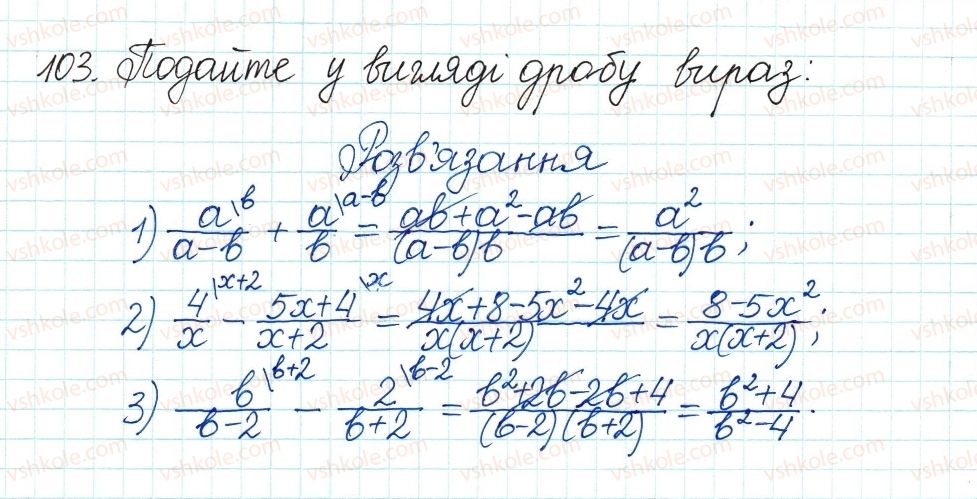 103. Подайте у вигляді дробу вираз:
Розв'язання
1) a\b/(a-b) + a\a-b/b = (ab+a²-ab)/((a-b)b) = a²/((a-b)b);
2) 4\x+2/x - (5x+4)\x/(x+2) = (4x+8-5x²-4x)/(x(x+2)) = (8-5x²)/(x(x+2));
3) b\b+2/(b-2) - 2\b-2/(b+2) = (b²+2b-2b+4)/((b-2)(b+2)) = (b²+4)/(b²-4).
vshkole.com